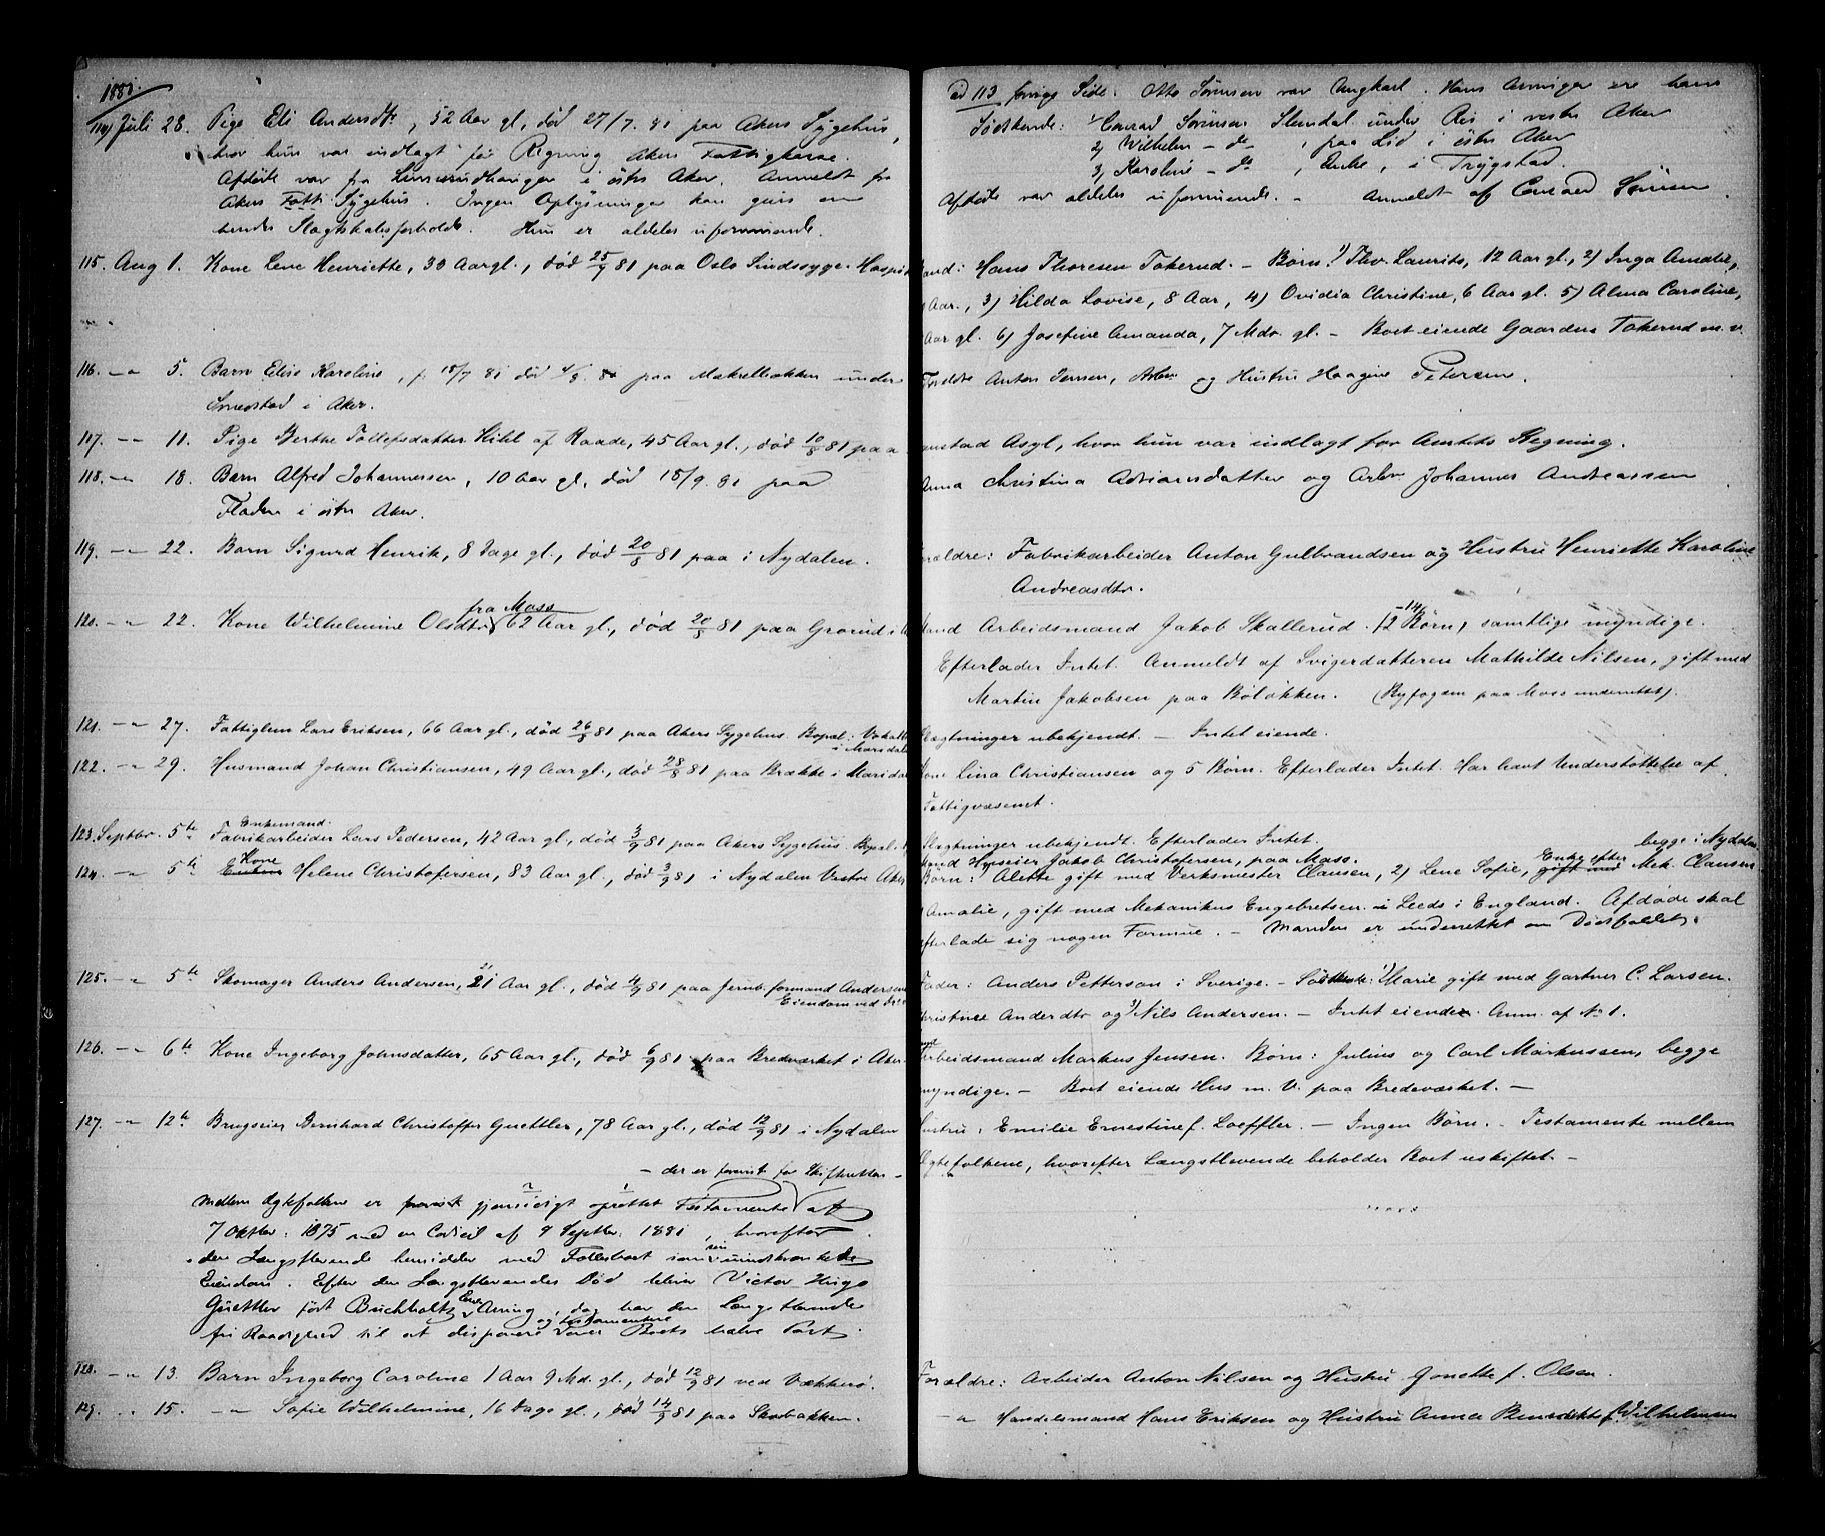 1881.
114) Juli 28. Pige Eli Andersdtr, 52 Aar gl, død 27/7. 81 paa Akers Sygehus,
hvor hun var indlagt for Regning Akers Fattigkasse.
Afdøde var fra i østre Aker. Anmeldt fra
Akers Fatti Sygehus. Ingen Oplysninger kan gives om
hendes Slægtskabsforholde. Hun er aldeles uformuende.
115. Aug 1. Kone Lene Henriette, 39 Aar gl., død 25/7 81 paa Oslo Sindssyge-Hospit
116. -"- 5. Barn Elise Karoline, f. 18/7 81 død 4/8. 81 paa Makrelbækken under
Smestad i Aker.
117. -"- 11. Pige Berthe Tollefsdatter Hihl af Raade, 45 Aar gl., død 10/8 81 paa
118. -"- 18. Barn Alfred Johannessen, 10 Aar gl, død 18/9. 81 paa
Fladen i østre Aker.
119. -"- 22. Barn Sigurd Henrik, 8 Dage gl., død 20/8 81 paa i Nydalen.
fra Moss
120. -"- 22. Kone Wilhelmine Olsdtr, 62 Aar gl., død 20/8 81 paa Grorud i
121. -"- 27. Fattiglem Lars Eriksen, 66 Aar gl., død 26/8 81 paa Akers Sygehus. Bopæl:
i Marsdalen
122. -"- 29. Husmand Johan Christiansen, 49 Aar gl., død 28/8 81 paa Brække i Marida
Enkemand.
123. Septbr. 5te Fabrikarbeider Lars Pedersen, 42 Aar gl., død 3/9 81 paa Akers Sygehus. Bopæl:
Kone
124. -"- 5te Enken Helene Christofersen, 83 Aar gl., død 3/9 81 i Nydalen Vestre Aker
125. -"- 5te Skomager Anders Andersen, 21 Aar gl., død 4/9 81 paa Jernb. formand Andersens
Eiendom ved
126. -"- 6te Kone Ingeborg Johnsdatter, 65 Aar gl., død 6/9 81 paa Bredværket i Aker
127. -"- 12te Brugseier Bernhard Christoffer Guettler, 78 Aar gl., død 12/9 81 i Nydalen
- der er forevist for Skifteretten -
Mellem Ægtefolkene er gjensidigt oprettet Testamente af
7 Oktbr. 1875 med en Codicil af 9 Septbr. 1881, hvorefter
den Længstlevende hensidder med Fællesboet som sin uindskrænkede
Eiendom. Efter den Længstlevendes Død bliver Victor Hugo
Guettler født Buchholtz Arving, dog har den Længstlevende
fri Raadighed til at disponere og testamentere over Boets halve Part.
128. -"- 13. Barn Ingeborg Caroline 1 Aar 9 Md. gl., død 12/9 81 ved Vækkerø.
129. -"- 15. -"- Sofie Wilhelmine, 16 Dage gl., død 14/9 81 paa Skarbakken.
ad 113 forrige Side. Otto Sørensen var Ungkarl. Hans Arvinger ere hans
Sødskende: 1) Conrad Sørensen Slemdal under Ris i vestre Aker
2) Wilhelm - do , paa Lid i østre Aker
3) Karoline - do , Enke, i Trygstad.
Afdøde var aldeles uformuende. - Anmeldt af Conrad Sørensen
Mand: Hans Thoresen Tokerud. - Børn: 1) Thv. Laurits, 12 Aar gl., 2) Inga Amalie,
Aar., 3) Hilda Lovise, 8 Aar, 4) Ovidia Christine, 6 Aar gl. 5) Alma Caroline,
Aar gl. 6) Josefine Amanda, 7 Mdr. gl. - Boet eiende Gaarden Tokerud m. v.
Forældre Anton Jensen, Arbm og Hustru Haagine Petersen.
Asyl, hvor hun var indlagt for Amtets Regning.
Anna Christina Adriansdatter og Arbm Johannes Andreassen
Forældre: Fabrikarbeider Anton Gulbrandsen og Hustru Henriette Karoline
Andreasdtr.
Mand Arbeidsmand Jakob Skallerud. 12 Børn, samtlige myndige.
Efterlader Intet. Anmeldt af Svigerdatteren Mathilde Nilsen, gift med
Martin Jakobsen paa Bøløkken. (Byfogden paa Moss underrettet).
Slægtninger ubekjendt. - Intet eiende.
Kone Lina Christiansen og 5 Børn. Efterlader Intet. Har havt Understøttelse af
Fattigvæsenet.
Slægtninger ubekjendt. Efterlader Intet.
begge i Nydalen
Mand Huseier Jakob Christofersen, paa Moss.
Børn: 1) Alette gift med Verksmester Clausen, 2) Lene Sofie, gift med Enke efter Mek. Clausen
Amalie, gift med Mekanikus Engebretsen i Leeds i England. Afdøde skal
efterlade sig nogen Formue. - Manden er underrettet om Dødsfaldet.
Fader: Anders Petterson i Sverige. - Sødskende: 1) Marie gift med Gartner C. Larsen.
Christine Andersdtr og 3) Nils Andersen. - Intet eiende. Anm. af No 1.
Arbeidsmand Markus Jensen. Børn: Julius og Carl Markussen, begge
myndige. - Boet eiende Hus m. V. paa Bredeværket. -
Hustru: Emilie Ernestine f. Loeffler. - Ingen Børn. - Testamente mellem
Ægtefolkene, hvorefter Længstlevende beholder Boet uskiftet. -
Forældre: Arbeider Anton Nilsen og Hustru Jonette f. Olsen.
-"- Handelsmand Hans Eriksen og Hustru Anna Benedikte f. Wilhelmsen